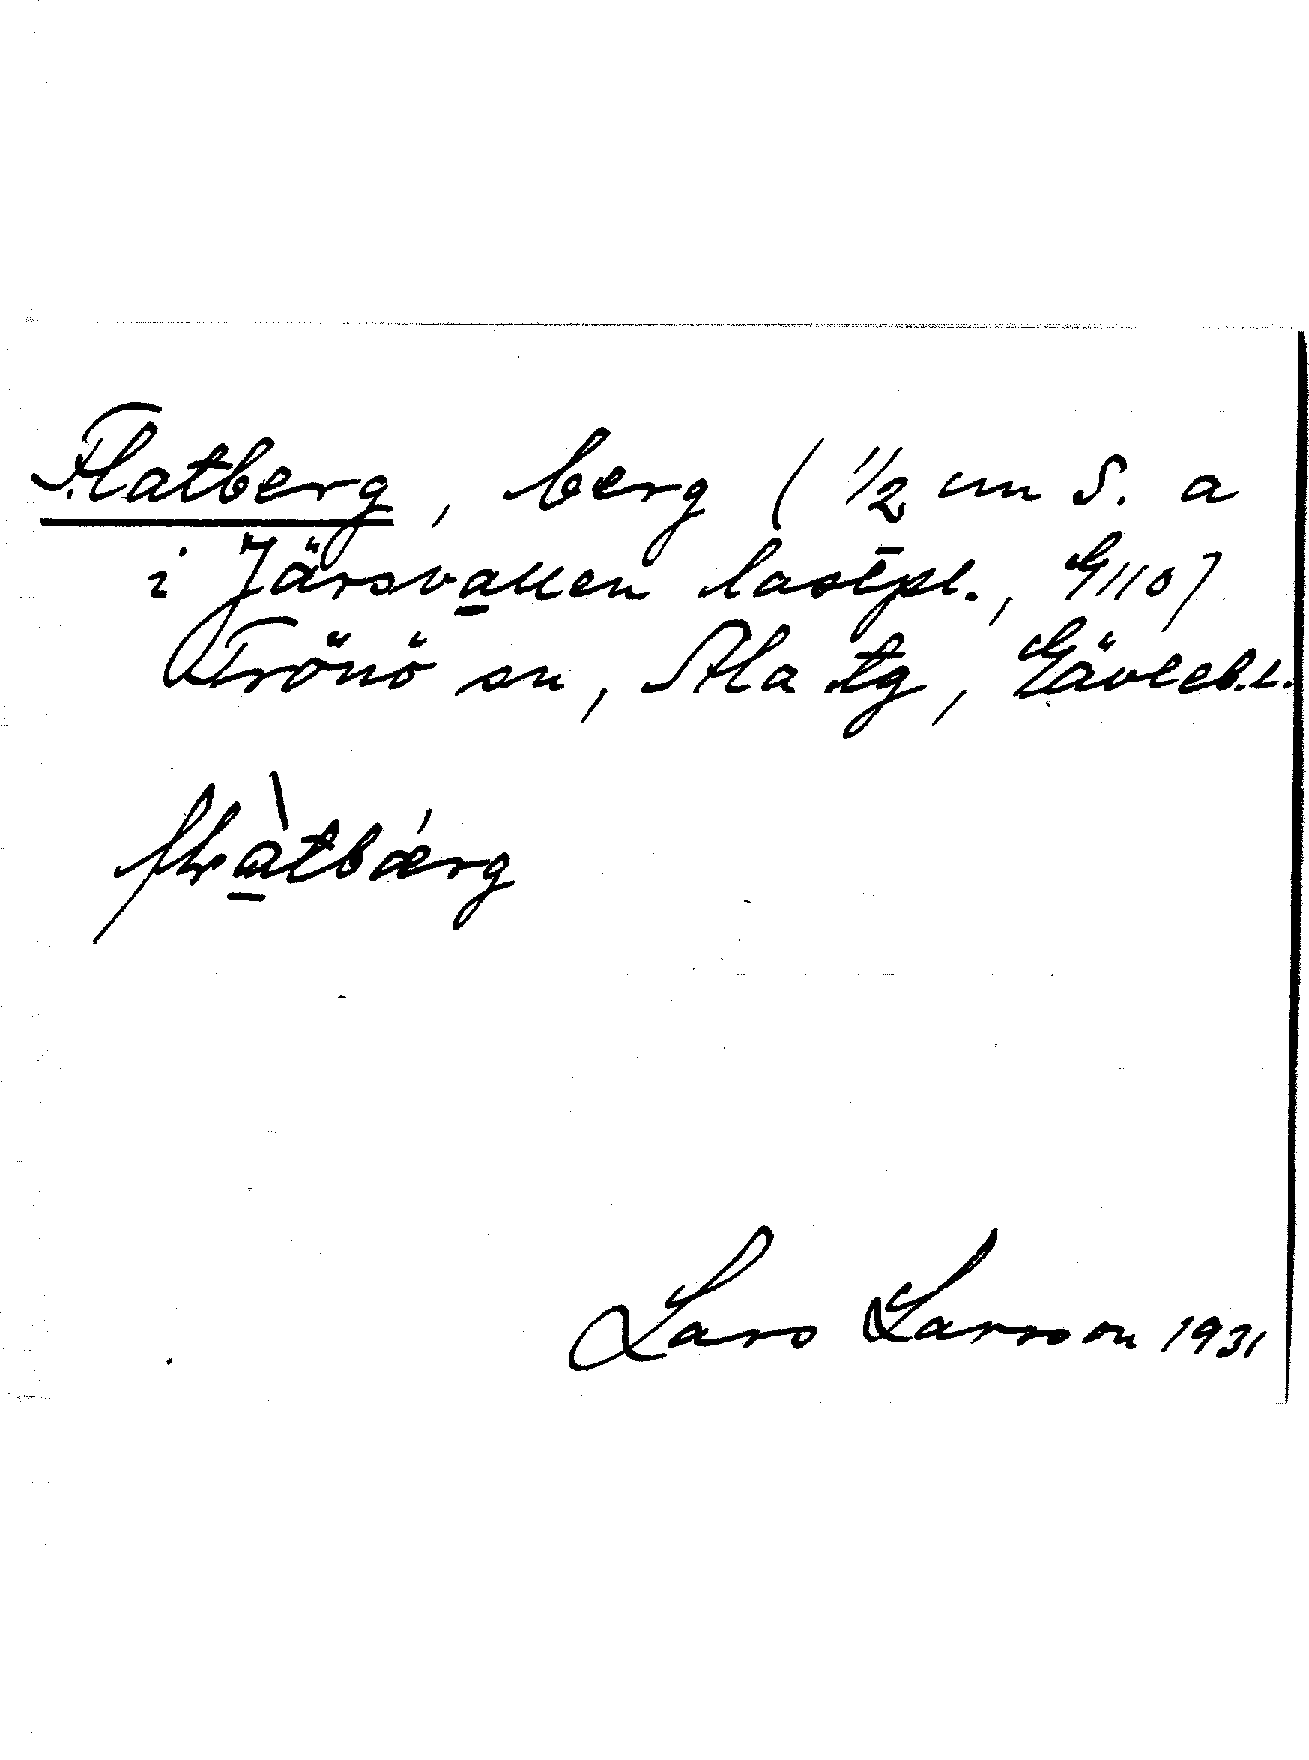 Flatberg, berg (1/2 cm S. a
i Järsvallen lastpl., G110)
Trönö sn, Ala tg, Gävleb.l.
flàtbǽrg
Lars Larsson 1931